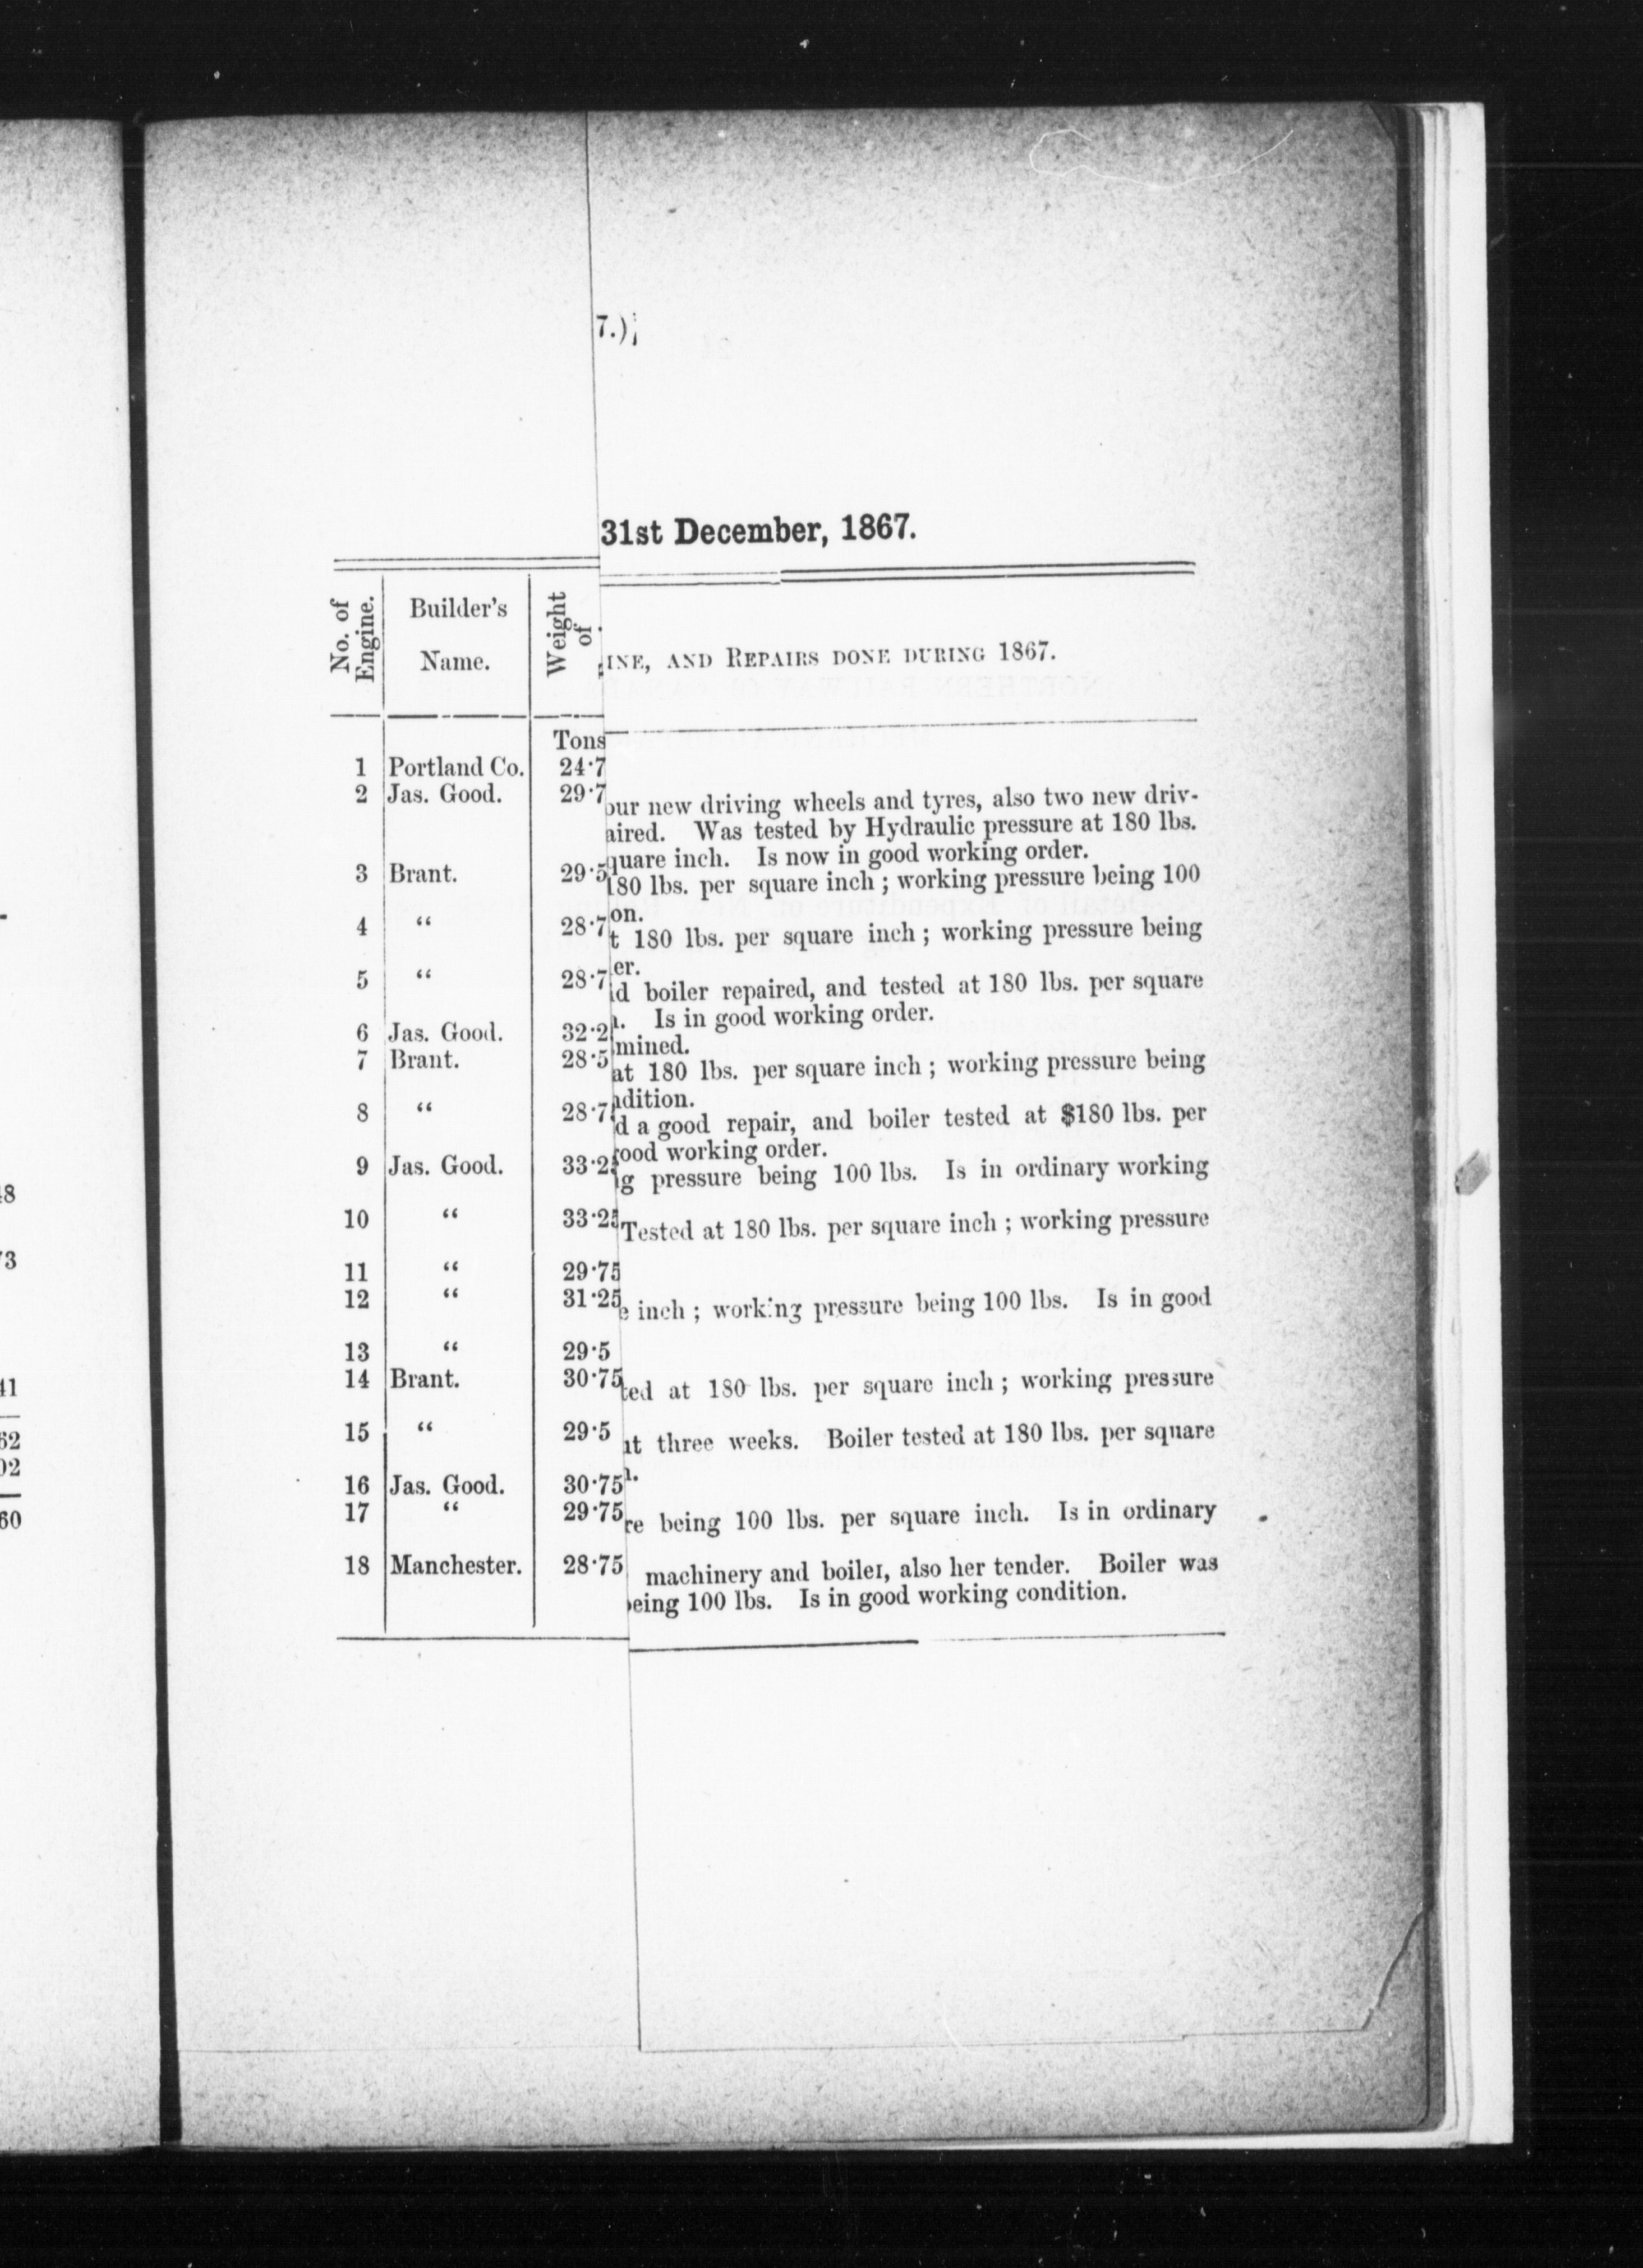 7.)
31st December, 1867.
No. of Engine.
Builder's Name.
Weight of
INE, AND REPAIRS DONE DURING 1867.
Tons
1 Portland Co. 24·7
2 Jas. Good. 29·7
our new driving wheels and tyres, also two new driv-
aired. Was tested by Hydraulic pressure at 180 lbs.
quare inch. Is now in good working order.
3 Brant. 29·5
180 lbs. per square inch ; working pressure being 100
on.
4 “ 28·7
t 180 lbs. per square inch ; working pressure being
er.
5 “ 28·7
d boiler repaired, and tested at 180 lbs. per square
. Is in good working order.
6 Jas. Good. 32·2
mined.
7 Brant. 28·5
at 180 lbs. per square inch ; working pressure being
dition.
8 “ 28·7
d a good repair, and boiler tested at $180 lbs. per
ood working order.
9 Jas. Good. 33·2
g pressure being 100 lbs. Is in ordinary working
10 “ 33·25
Tested at 180 lbs. per square inch ; working pressure
11 “ 29·75
12 “ 31·25
e inch ; working pressure being 100 lbs. Is in good
13 “ 29·5
14 Brant. 30·75
ted at 180 lbs. per square inch ; working pressure
15 “ 29·5
t three weeks. Boiler tested at 180 lbs. per square
16 Jas. Good. 30·75
17 “ 29·75
re being 100 lbs. per square inch. Is in ordinary
18 Manchester. 28·75
machinery and boiler, also her tender. Boiler was
eing 100 lbs. Is in good working condition.
48
73
41
62
02
60